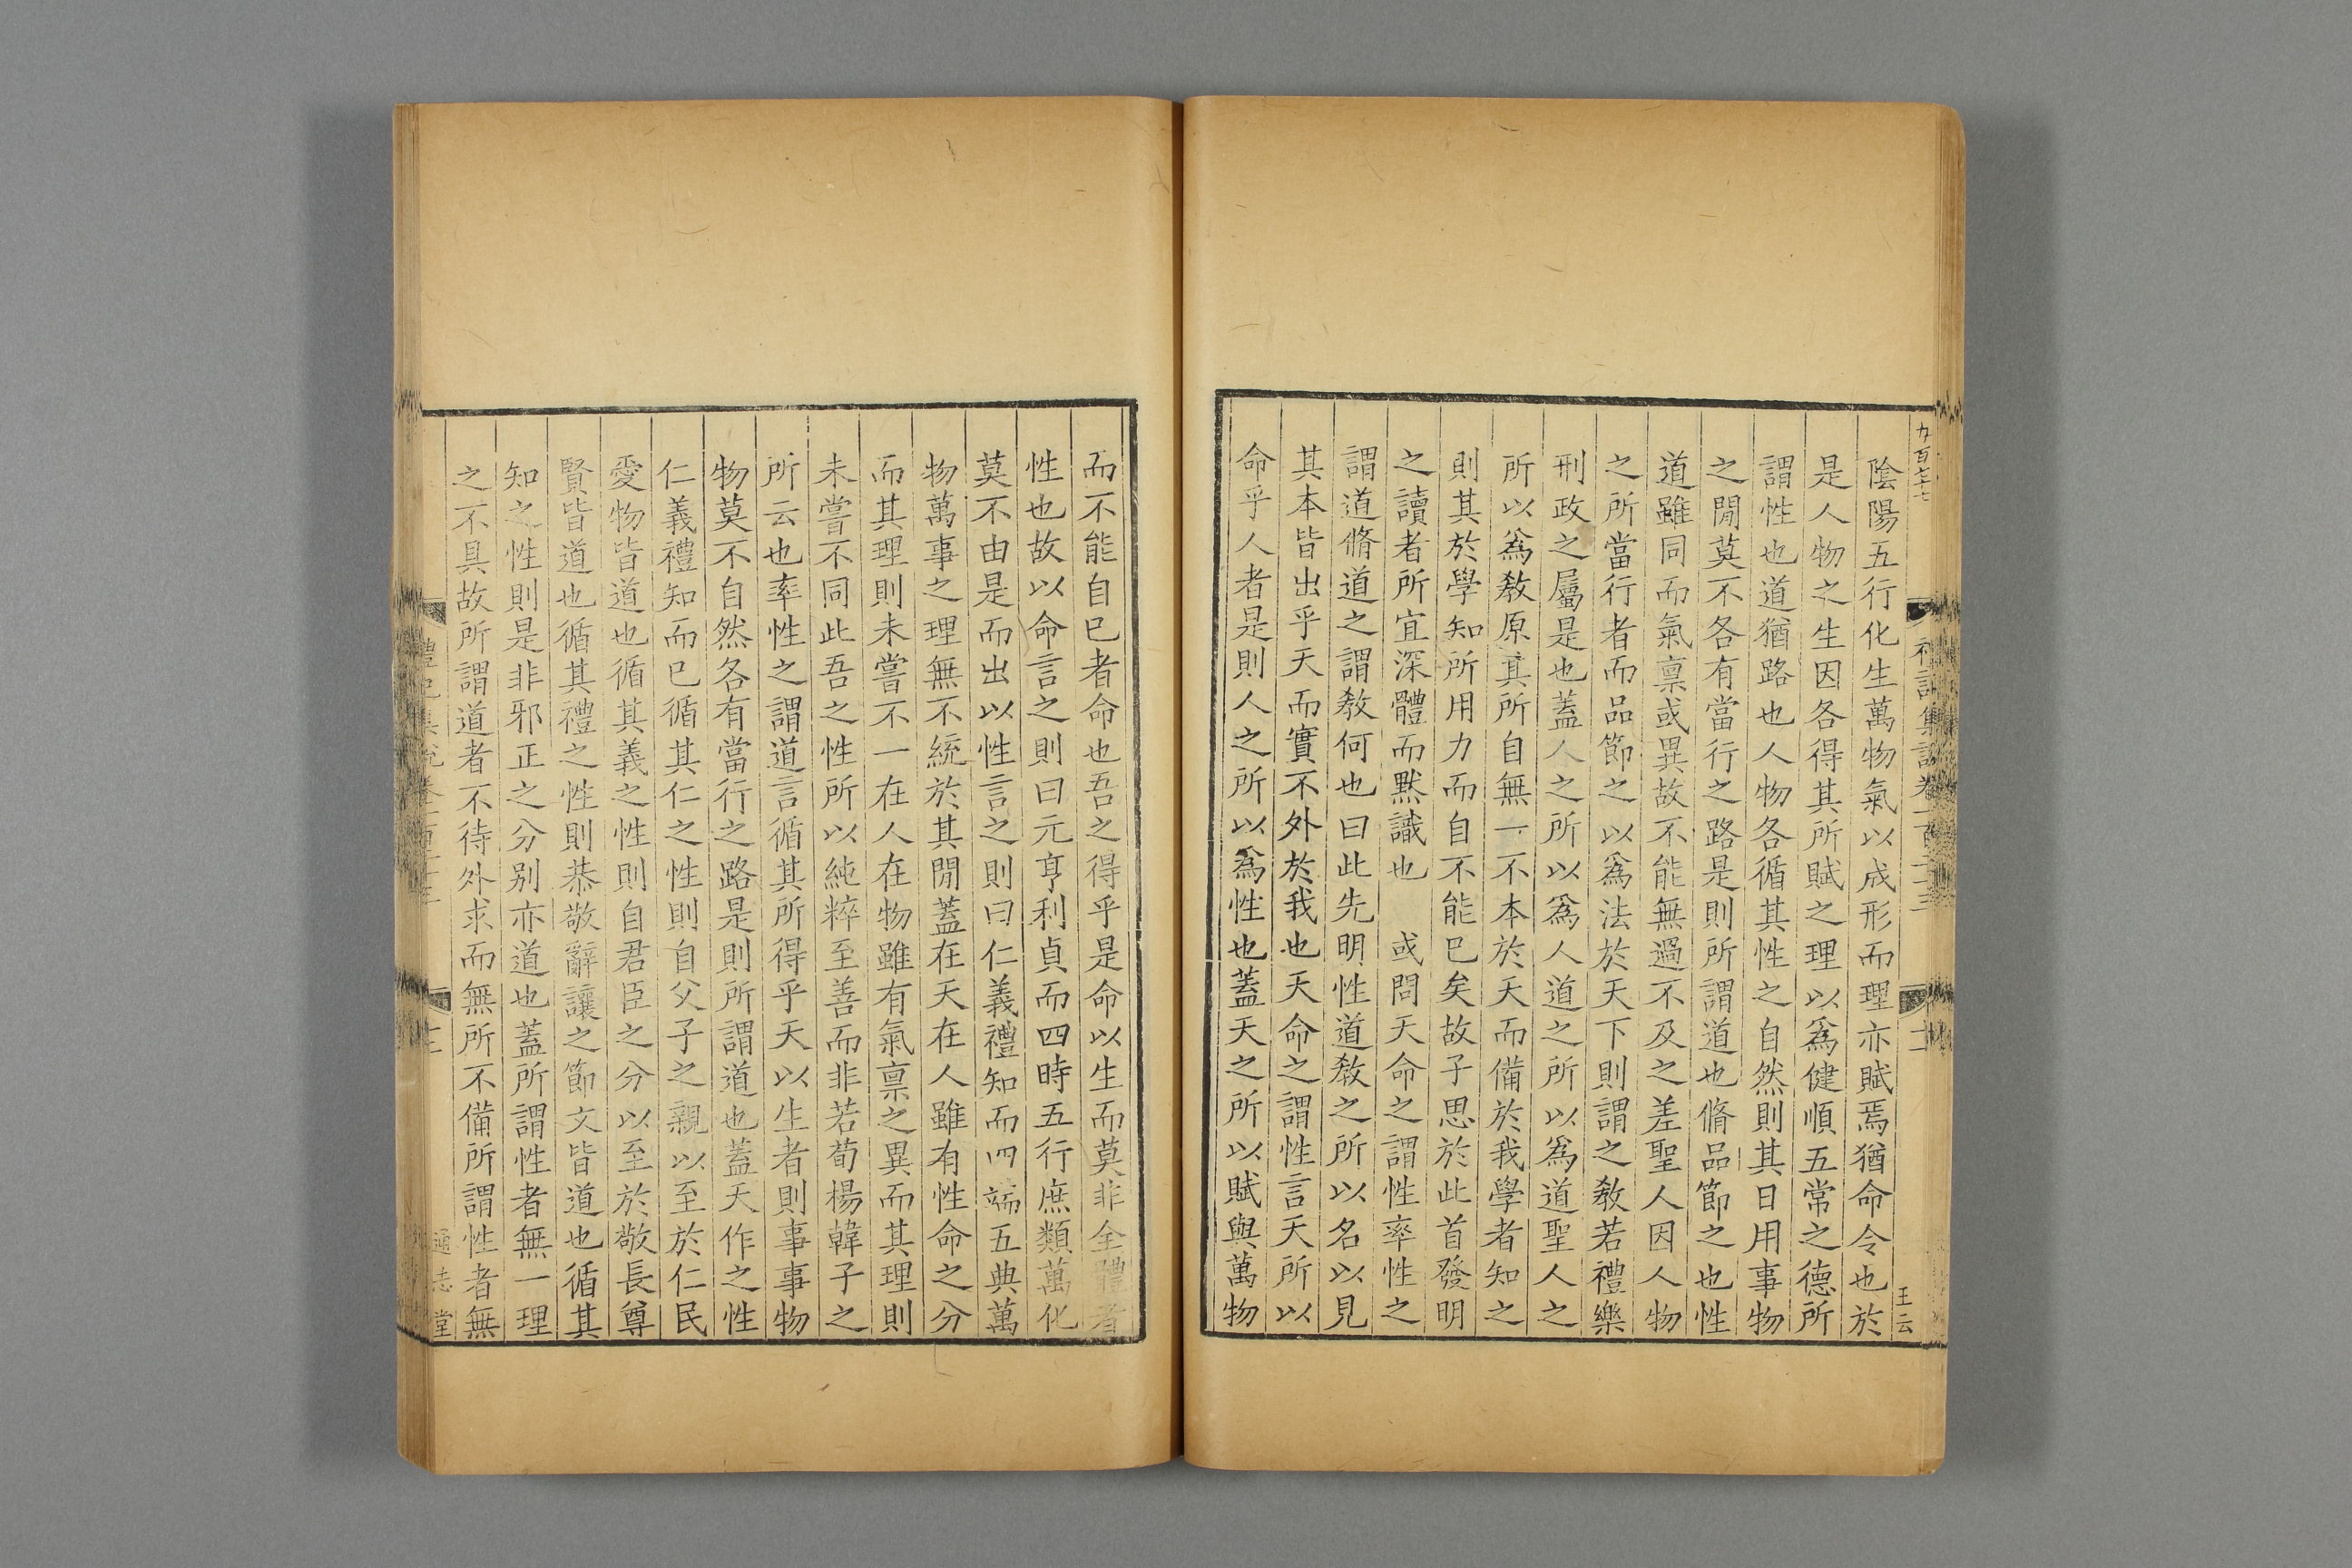 九百七十七
王云
陰陽五行化生萬物氣以成形而理亦賦焉猶命令也於
是人物之生因各得其所賦之理以爲健順五常之德所
謂性也道猶路也人物各循其性之自然則其日用事物
之閒莫不各有當行之路是則所謂道也脩品節之也性
道雖同而氣稟或異故不能無過不及之差聖人因人物
之所當行者而品節之以爲法於天下則謂之敎若禮樂
刑政之屬是也蓋人之所以爲人道之所以爲道聖人之
所以爲敎原其所自無一不本於天而備於我學者知之
則其於學知所用力而自不能已矣故子思於此首發明
之讀者所宜深體而默識也　或問天命之謂性率性之
謂道脩道之謂敎何也曰此先明性道敎之所以名以見
其本皆出乎天而實不外於我也天命之謂性言天所以
命乎人者是則人之所以爲性也蓋天之所以賦與萬物
而不能自已者命也吾之得乎是命以生而莫非全體者
性也故以命言之則曰元亨利貞而四時五行庶類萬化
莫不由是而出以性言之則曰仁義禮知而四端五典萬
物萬事之理無不統於其閒蓋在天在人雖有性命之分
而其理則未嘗不一在人在物雖有氣稟之異而其理則
未嘗不同此吾之性所以純粹至善而非若荀楊韓子之
所云也率性之謂道言循其所得乎天以生者則事事物
物莫不自然各有當行之路是則所謂道也蓋天作之性
仁義禮知而已循其仁之性則自父子之親以至於仁民
愛物皆道也循其義之性則自君臣之分以至於敬長尊
賢皆道也循其禮之性則恭敬辭讓之節文皆道也循其
知之性則是非邪正之分別亦道也蓋所謂性者無一理
之不具故所謂道者不待外求而無所不備所謂性者無
通志堂